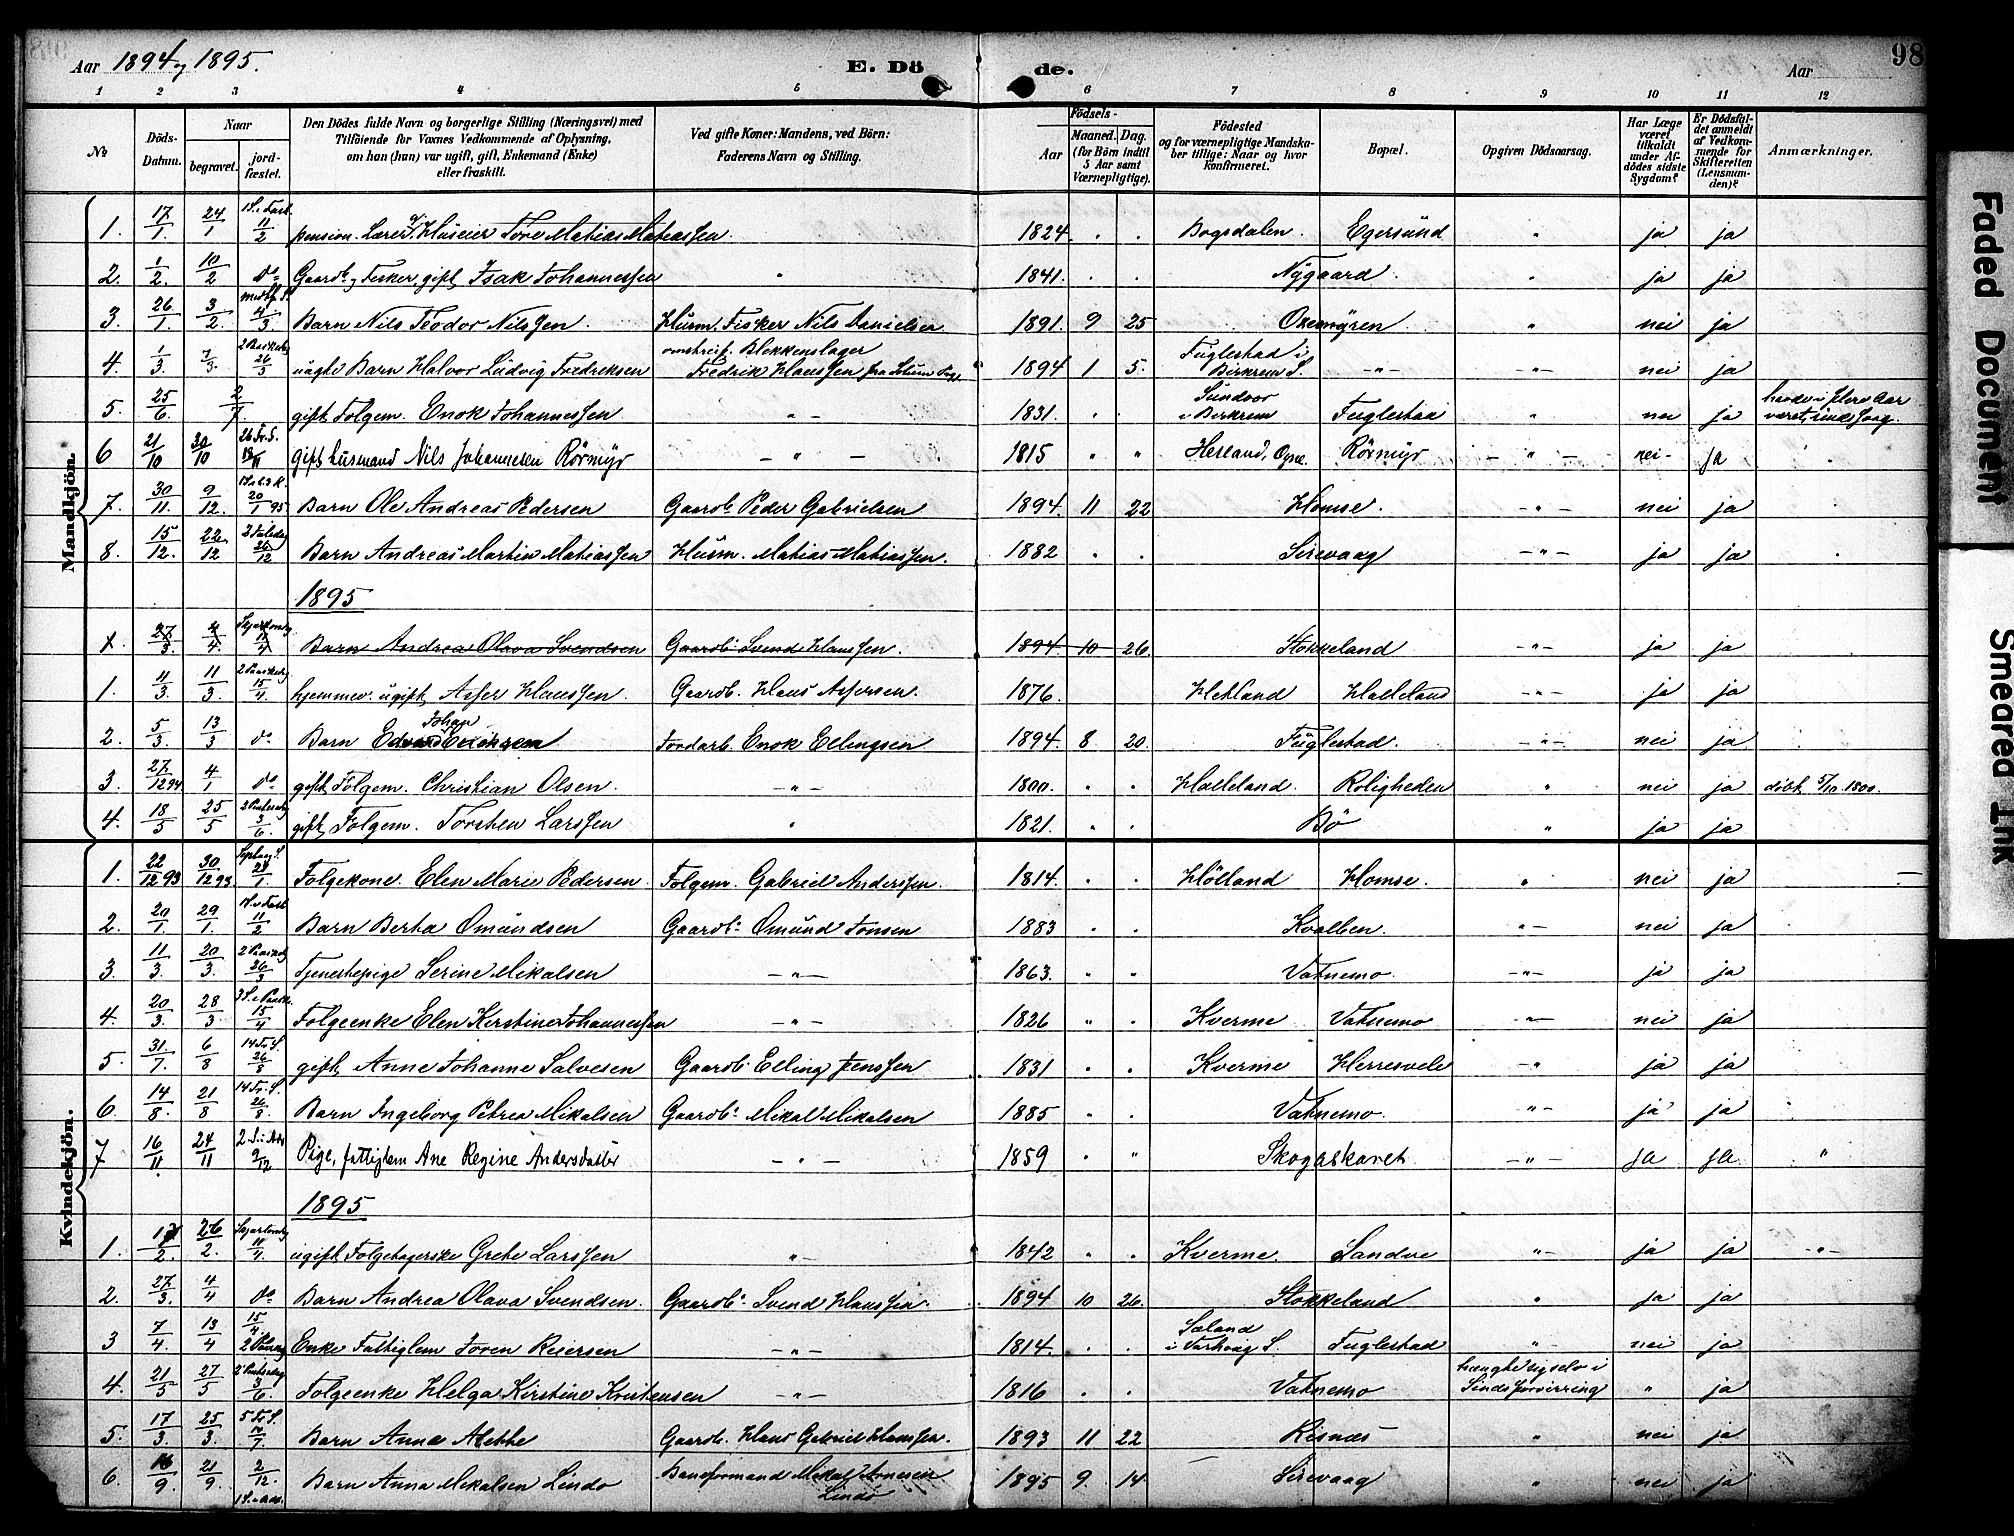 Aar 1894 og 1895. E. Döde. Aar 98
1 2 3 4 5 6 7 8 9 10 11 12
No Döds-Datum. Naar begravet. jord-fæstet. Den Dödes fulde Navn og borgerlige Stilling (Næringsvei) med Tilföiende for Voxnes Vedkommende af Oplysning, om han (hun) var ugift, gift, Enkemand (Enke) eller fraskilt. Ved gifte Koner: Mandens, ved Börn: Faderens Navn og Stilling. Födsels- Aar Maaned. Dag. (for Börn indtil 5 Aar samt Værnepligtige). Födested og for værnepligtige Mandskaber tillige: Naar og hvor konfirmeret. Bopæl. Opgiven Dödsaarsag. Har Læge været tilkaldt under Afdödes sidste Sygdom? Er Dödsfaldet anmeldt af Vedkommende for Skifteretten (Lensmanden)? Anmærkninger.
Mandkjön.
1. 17/1. 24/1 1 S. i Fast. 11/2 pension. Lærer, Huseier Tore Matias Matiassen 1824. Bogsdalen. Egersund " ja ja
2. 1/2. 10/2 do Gaardb. og Fisker, gift, Isak Johannessen " 1841. Nygaard " ja ja
3. 26/1. 3/2. 4/3 Barn Nils Teodor Nilssen. Husm. Fisker Nils Danielsen 1891. 9 25 Oxemyren " nei ja
4. 1/3. 7/3. 2 Paaskedag 26/3 uægte Barn Halvor Ludvig Fredriksen omstreif. Blekkenslager Fredrik Hanssen 1894 1 5. Fuglestad i Birkrem S. -"- -"- nei ja
5. 25/6. 2/7. gift Folgem. Enok Johannessen -"- 1831. Sundvor i Birkrem Fuglestad " nei ja havde i flere Aar været sindssvag.
6 21/10 30/10 26 Tr. S. 18/11 gift husmand Nils Johannesen Rörmyr -"- 1815 " " Hetland, Ogne. Rörmyr -"- nei- ja
7. 30/11. 9/12. 20/1 95 Barn Ole Andreas Pedersen Gaardb. Peder Gabrielsen 1894. 11 22 Homse. -"- nei ja
8. 15/12. 22/12 2 Juledag 26/12 Barn Andreas Martin Matiassen Husm. Matias Matiassen. 1882 Sirevaag -"- ja ja
1895
1 27/3. 4/4. Skjærtorsdag 11/4 Barn Andrea Olava Svendsen Gaardb. Svend Hanssen. 1894. 10 26. Stokkeland -"- ja ja
1. 4/3. 11/3. 2 Paaskedag 15/4. hjemmev. ugift, Asser Hanssen. Gaardb. Hans Assersen. 1876. Hetland Hadeland -"- ja ja
2. 5/3. 13/3 do Barn Edvard Johan Enoksen Jordarb. Enok Ellingsen 1894. 8 20. Fuglestad. -"- nei ja
3. 27/12 94 4/1 do gift Folgem. Christian Olsen. -"- 1800. Hadeland. Roligheden " nei ja döbt 5/10 1800.
4. 18/5 25/5 2 Pintsedag 3/6. gift, Folgem. Torsten Larssen " 1821. Bö " ja ja
Kvindekjön.
1. 22/12 93 30/12 93 28/1. Folgekone. Elen Marie Pedersen Folgem. Gabriel Anderssen. 1814. Hölland Homse. " nei ja
2. 20/1. 29/1. 1 S. i Fast 11/2 Barn Berta Omundsen Gaardb. Omund Jonsen 1883 Kvalben. "- nei ja
3. 11/3. 20/3. 2 Paaskedag 26/3 Tjenestepige Serine Mikalsen -"- 1863. Vatnemo. -"- ja ja
4. 20/3. 28/3. 3 S. e Paaske. 15/4 Folgeenke Elen Kirstine Johannessen -"- 1826 Kverme Vatnemo -"- nei ja
5. 31/7. 6/8 14 Tr. S. 26/8 gift, Anne Johanne Salvesen Gaardb. Elling Jenssen 1831 Kverme Herresvele -" ja ja
6. 14/8. 21/8 14 Tr. S. 26/8. Barn Ingeborg Petrea Mikalsen Gaardb. Mikal Mikalsen 1885 Vatnemo. "- ja ja
7 16/11 24/11 2 S. i Adv 9/12 Pige, fattiglem Ane Regine Andersdatter -"- 1859 " " Skogaskaret -"- ja ja "
1895
1. 17/2. 26/2. Skjærtorsdag 11/4. ugift, Folgetagerske Grete Larssen "- 1842 " " Kverme. Sandve "- ja ja -"-
2. 27/3. 4/4 do Barn Andrea Olava Svendsen. Gaardb. Svend Hanssen. 1894 10 26. Stokkeland " ja ja
3 7/4. 13/4 15/4. 2 Paaskedag Enke Fattiglem Joren Reiersen -"- 1814. Sæland i Varhaug S. Fuglestad "- nei ja
4. 21/5 27/5 2 Pintsedag 3/6. Folgeenke Helga Kirstine Kristensen -"- 1816 Vatnemo hængte sig selv i Sindsforvirring " ja
5. 17/3. 25/3. 5 Tr. S. 14/7. Barn Anna Alette Gaardb. Hans Gabriel Hanssen. 1893 11 22 Risnæs " nei ja
6. 16/9. 21/9. 2/12. 1 S. i Adv. Barn Anna Mikalsen Lindö Baneformand Mikal Arnesen Lindö 1895 9. 14. Sirevaag " nei ja
Faded Document
Smeared Ink